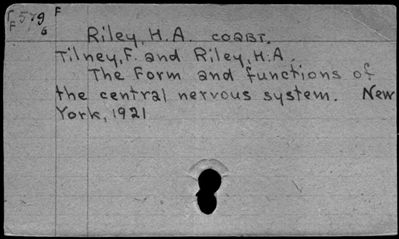 F
F 579
6
Riley, H.A. соавт.
Tilney, F. and Riley, H.A.
The Form and functions of
the central nervous system. New
York, 1921